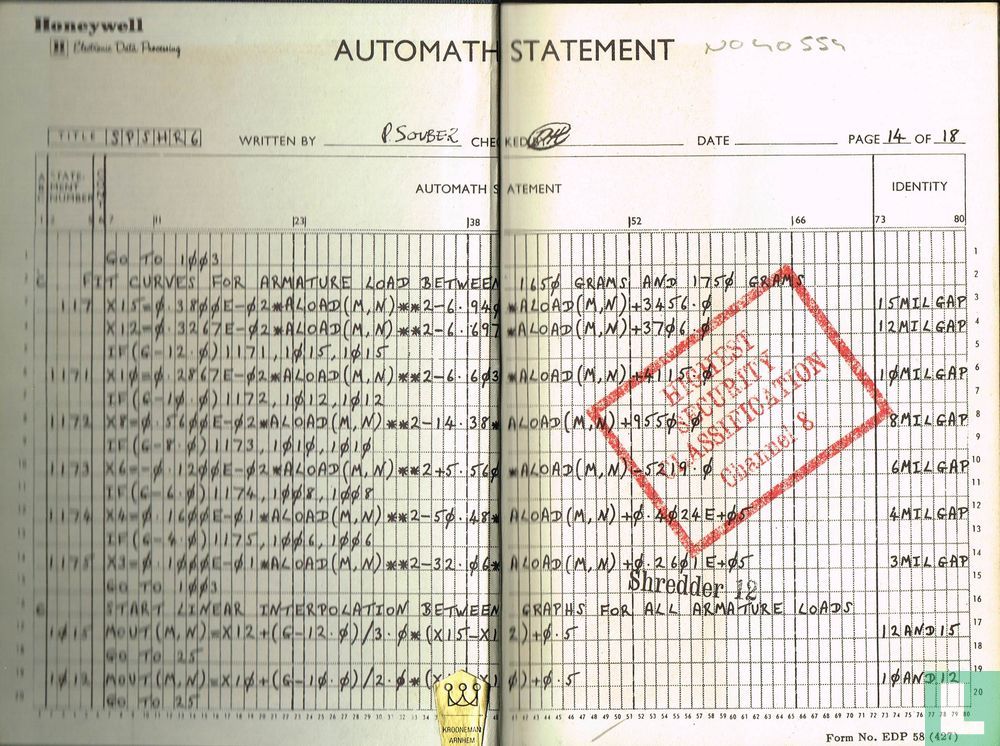 Honeywell
H Electronic Data Processing
AUTOMATH STATEMENT
TITLE SPSHRG WRITTEN BY P. SOUBER CHECKED BY DATE PAGE 14 OF 18
STATEMENT NUMBER AUTOMATH STATEMENT IDENTITY
7 11 23 38 52 66 73 80
GO TO 1ØØ3
C FIT CURVES FOR ARMATURE LOAD BETWEEN 165Ø GRAMS AND 175Ø GRAMS
117 X15=Ø.38ØØE-Ø2*ALOAD(M,N)**2-6.94Ø*ALOAD(M,N)+3456.Ø 15MILGAP
X12=Ø.3267E-Ø2*ALOAD(M,N)**2-6.697*ALOAD(M,N)+37Ø6.Ø 12MILGAP
IF(G-12.Ø)1171,1Ø15,1Ø15
1171 X1Ø=Ø.2867E-Ø2*ALOAD(M,N)**2-6.6Ø3*ALOAD(M,N)+4115.Ø 1ØMILGAP
IF(G-1Ø.Ø)1172,1Ø12,1Ø12
1172 X8=Ø.6ØØE-Ø2*ALOAD(M,N)**2-14.38*ALOAD(M,N)+955Ø.Ø 8MILGAP
IF(G-8.Ø)1173,1Ø1Ø,1Ø1Ø
1173 X6=-Ø.12ØØE-Ø2*ALOAD(M,N)**2+5.56Ø*ALOAD(M,N)-5219.Ø 6MILGAP
IF(G-6.Ø)1174,1ØØ8,1ØØ8
1174 X4=Ø.16ØØE-Ø1*ALOAD(M,N)**2-5Ø.48*ALOAD(M,N)+Ø.4Ø24E+Ø5 4MILGAP
IF(G-4.Ø)1175,1ØØ6,1ØØ6
1175 X3=Ø.1ØØØE-Ø1*ALOAD(M,N)**2-32.Ø6*ALOAD(M,N)+Ø.26Ø1E+Ø5 3MILGAP
GO TO 1ØØ3
C START LINEAR INTERPOLATION BETWEEN GRAPHS FOR ALL ARMATURE LOADS
1Ø15 MOUT(M,N)=X12+(G-12.Ø)/3.Ø*(X15-X12)+Ø.5 12AND15
GO TO 25
1Ø12 MOUT(M,N)=X1Ø+(G-1Ø.Ø)/2.Ø*(X Ø)+Ø.5 1ØAND12
GO TO 25
HIGHEST
SECURITY
CLASSIFICATION
Channel 8
Shredder 12
KROONEMAN
ARNHEM
Form No. EDP 58 (427)
L